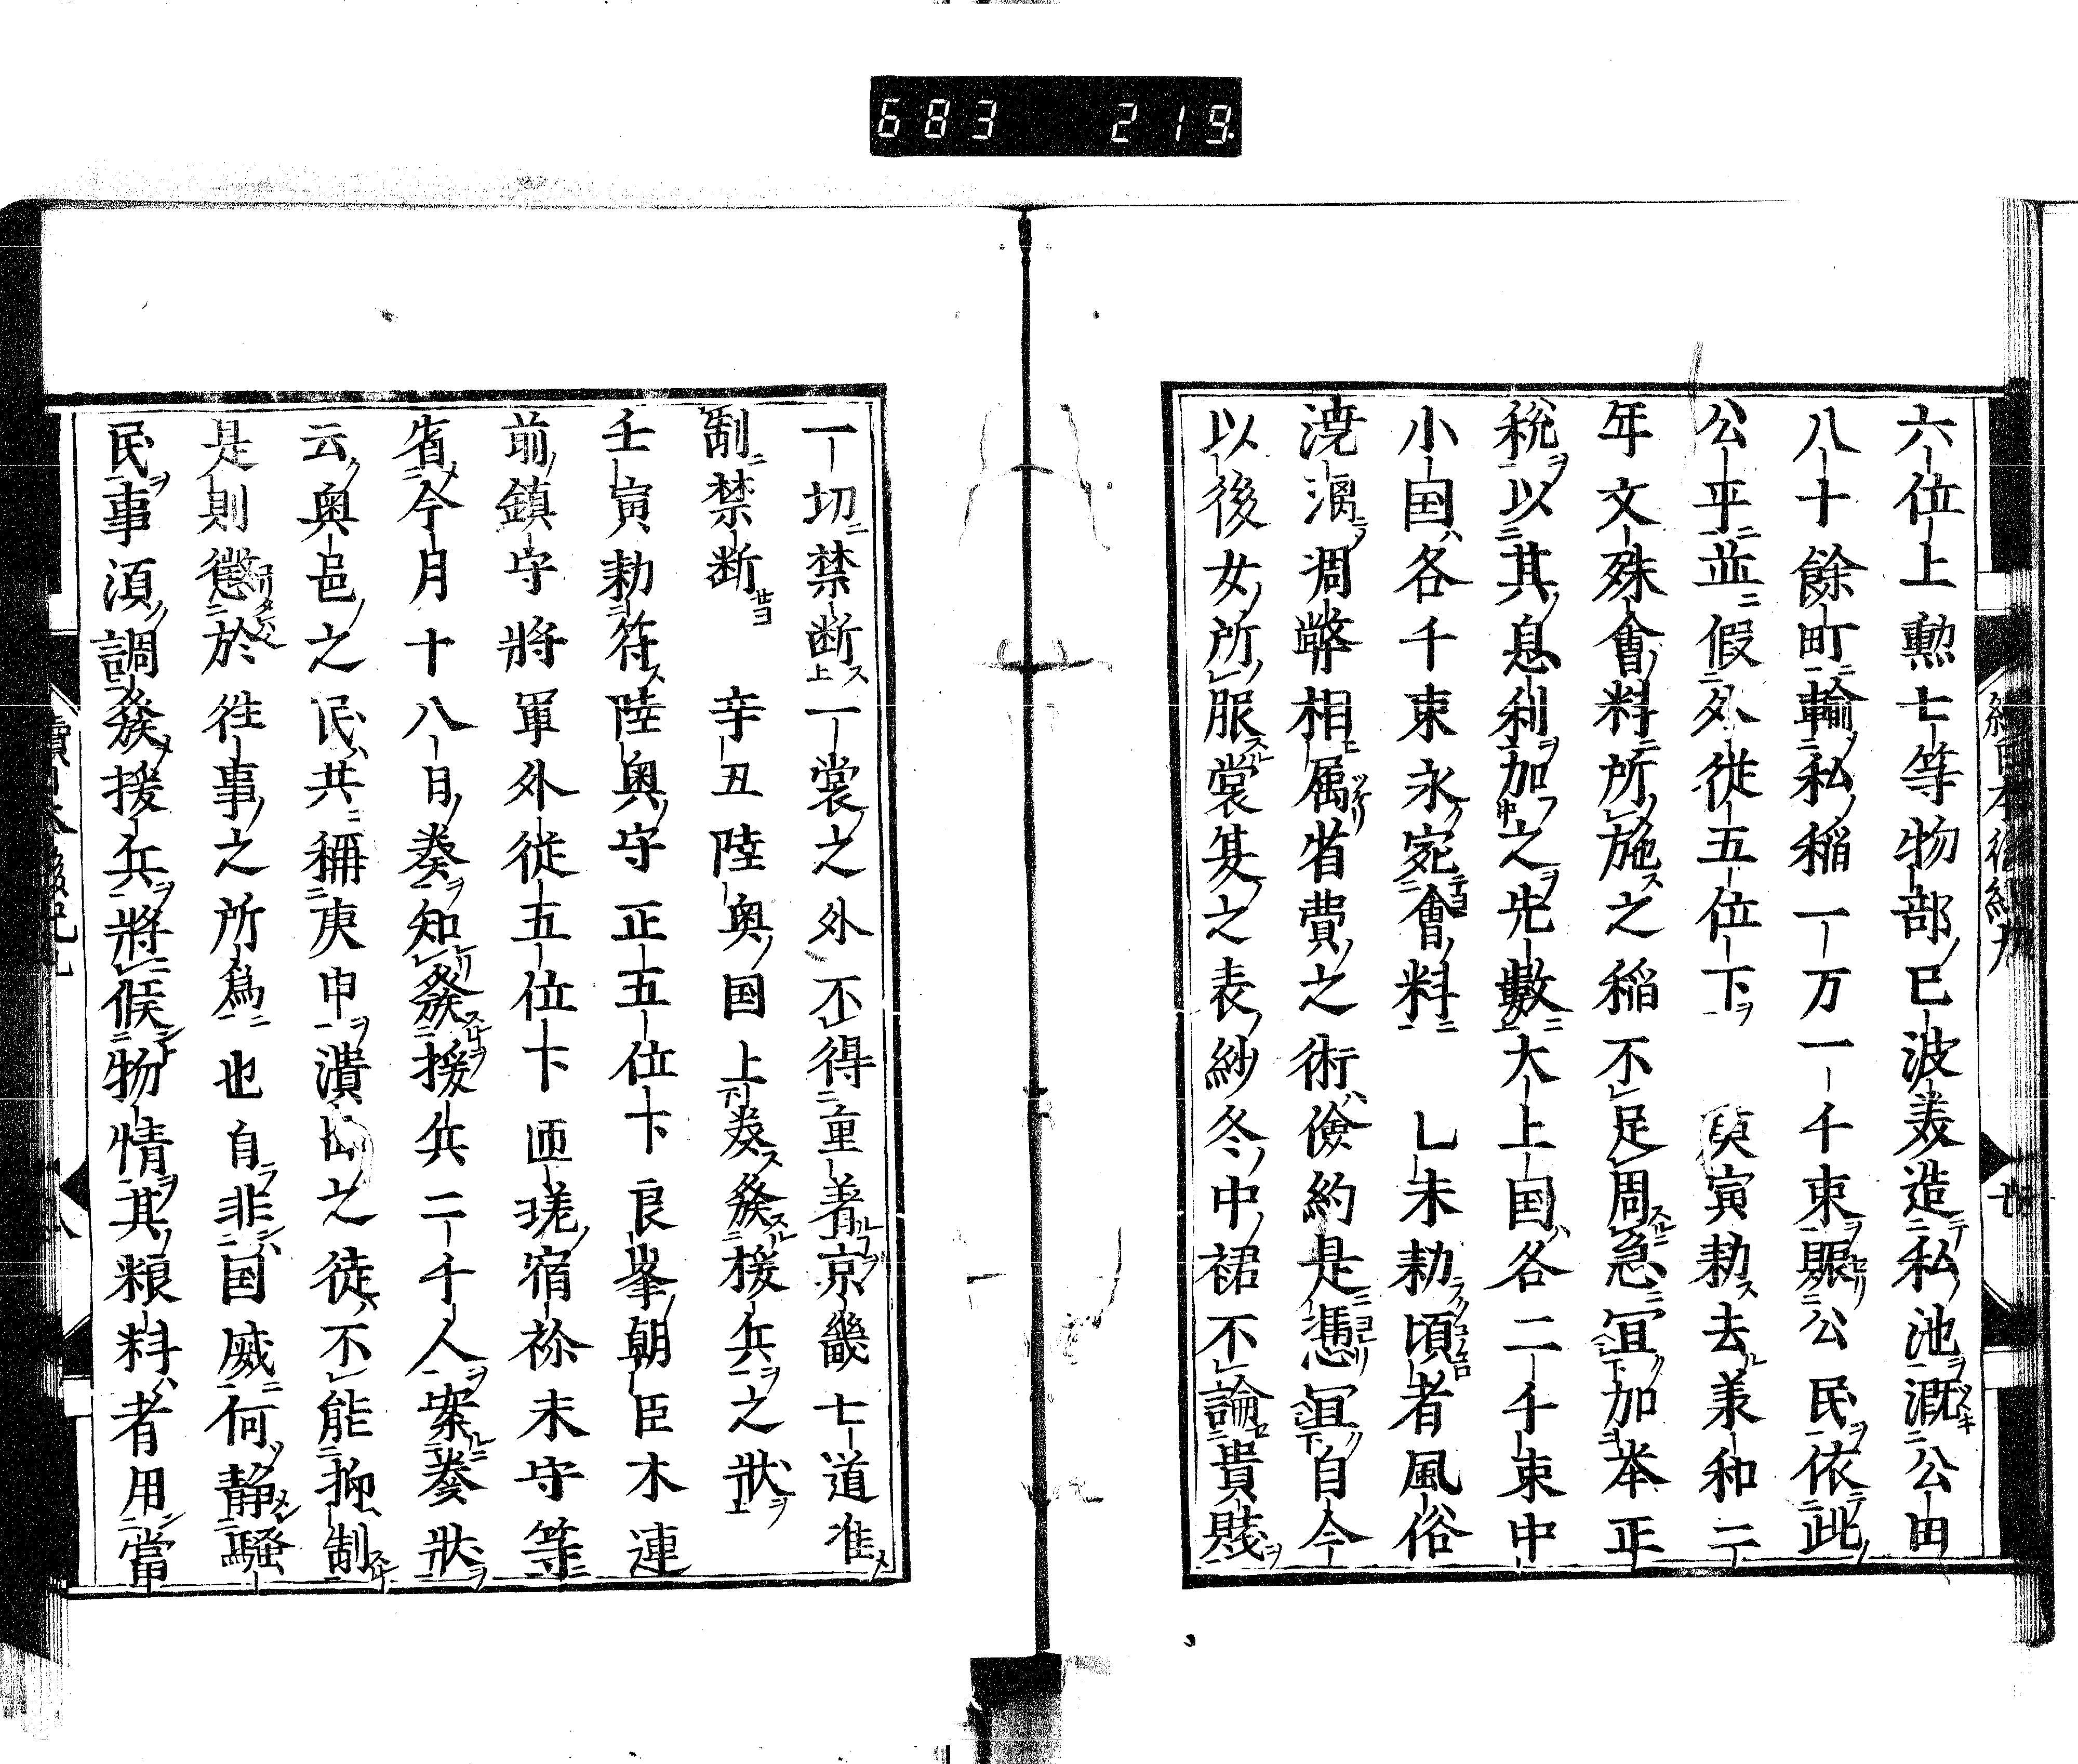 683 219
六位上勲七等物部已波美造私池漑公田
八十餘町輸私稲一万一千束賑公民依此
公平並假外従五位下 庚寅勅去美和二
年文殊會料所施之稲不足周急冝加举正
税以其息利加之先數大上国各二千束中
小国各千束永宛會料 乚未勅頃者風俗
澆漓凋弊相属省費之術儉約是憑冝自今
以後女所服裳夏之表紗冬中裙不論貴賤
一切禁断一裳之外不得重著京畿七道准
制禁断 辛丑陸奥国上奏發援兵之状
壬寅勅符陸奥守正五位下良峯朝臣木連
前鎮守將軍外従五位下匝瑳宿祢末守等
省今月十八日奏知發援兵二千人案奏状
云奥邑之民共稱庚申潰出之徒不能抑制
是則懲於徃事之所為也自非国威何静騒
民事湏調發援兵將候物情其粮料者用當